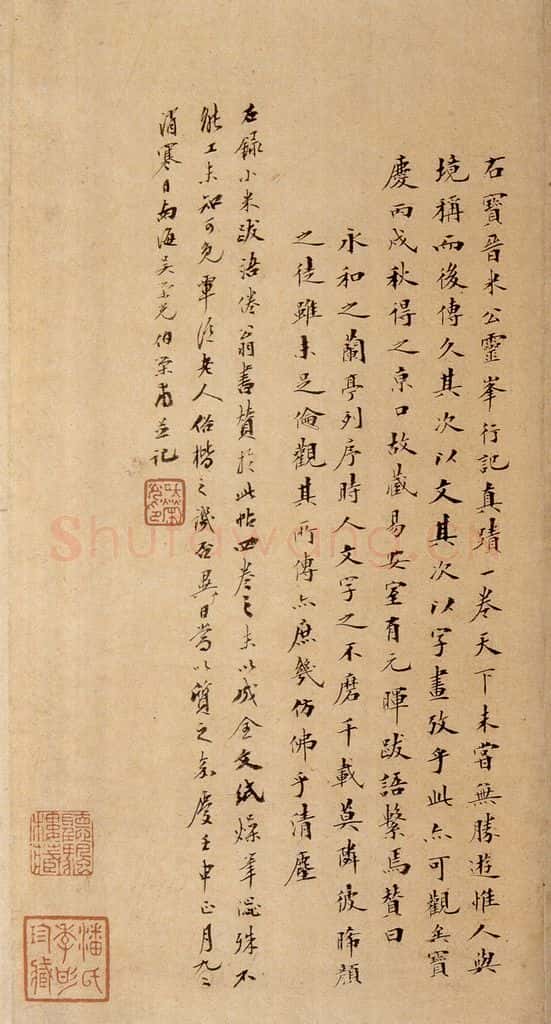 右寶晉米公靈峯行記真蹟一卷天下未嘗無勝遊惟人與
境稱而後傳久其次以文其次以字畫攷乎此亦可觀矣寶
慶丙戌秋得之京口故藏易安室有元暉跋語繫焉贊曰
永和之蘭亭列序時人文字之不磨千載莫隣彼晞顏
之徒雖未足倫觀其所傳亦庶幾仿佛乎清塵
右錄小米跋語倦翁書贊於此帖四卷之末以成全文紙燥筆澀殊不
能工未知可免覃谿老人俗楷之譏否異日當以質之嘉慶壬申正月九
消寒日南海吳榮光伯榮甫並記
聽颿樓藏
潘氏季彤珍藏
Shufawang.cn